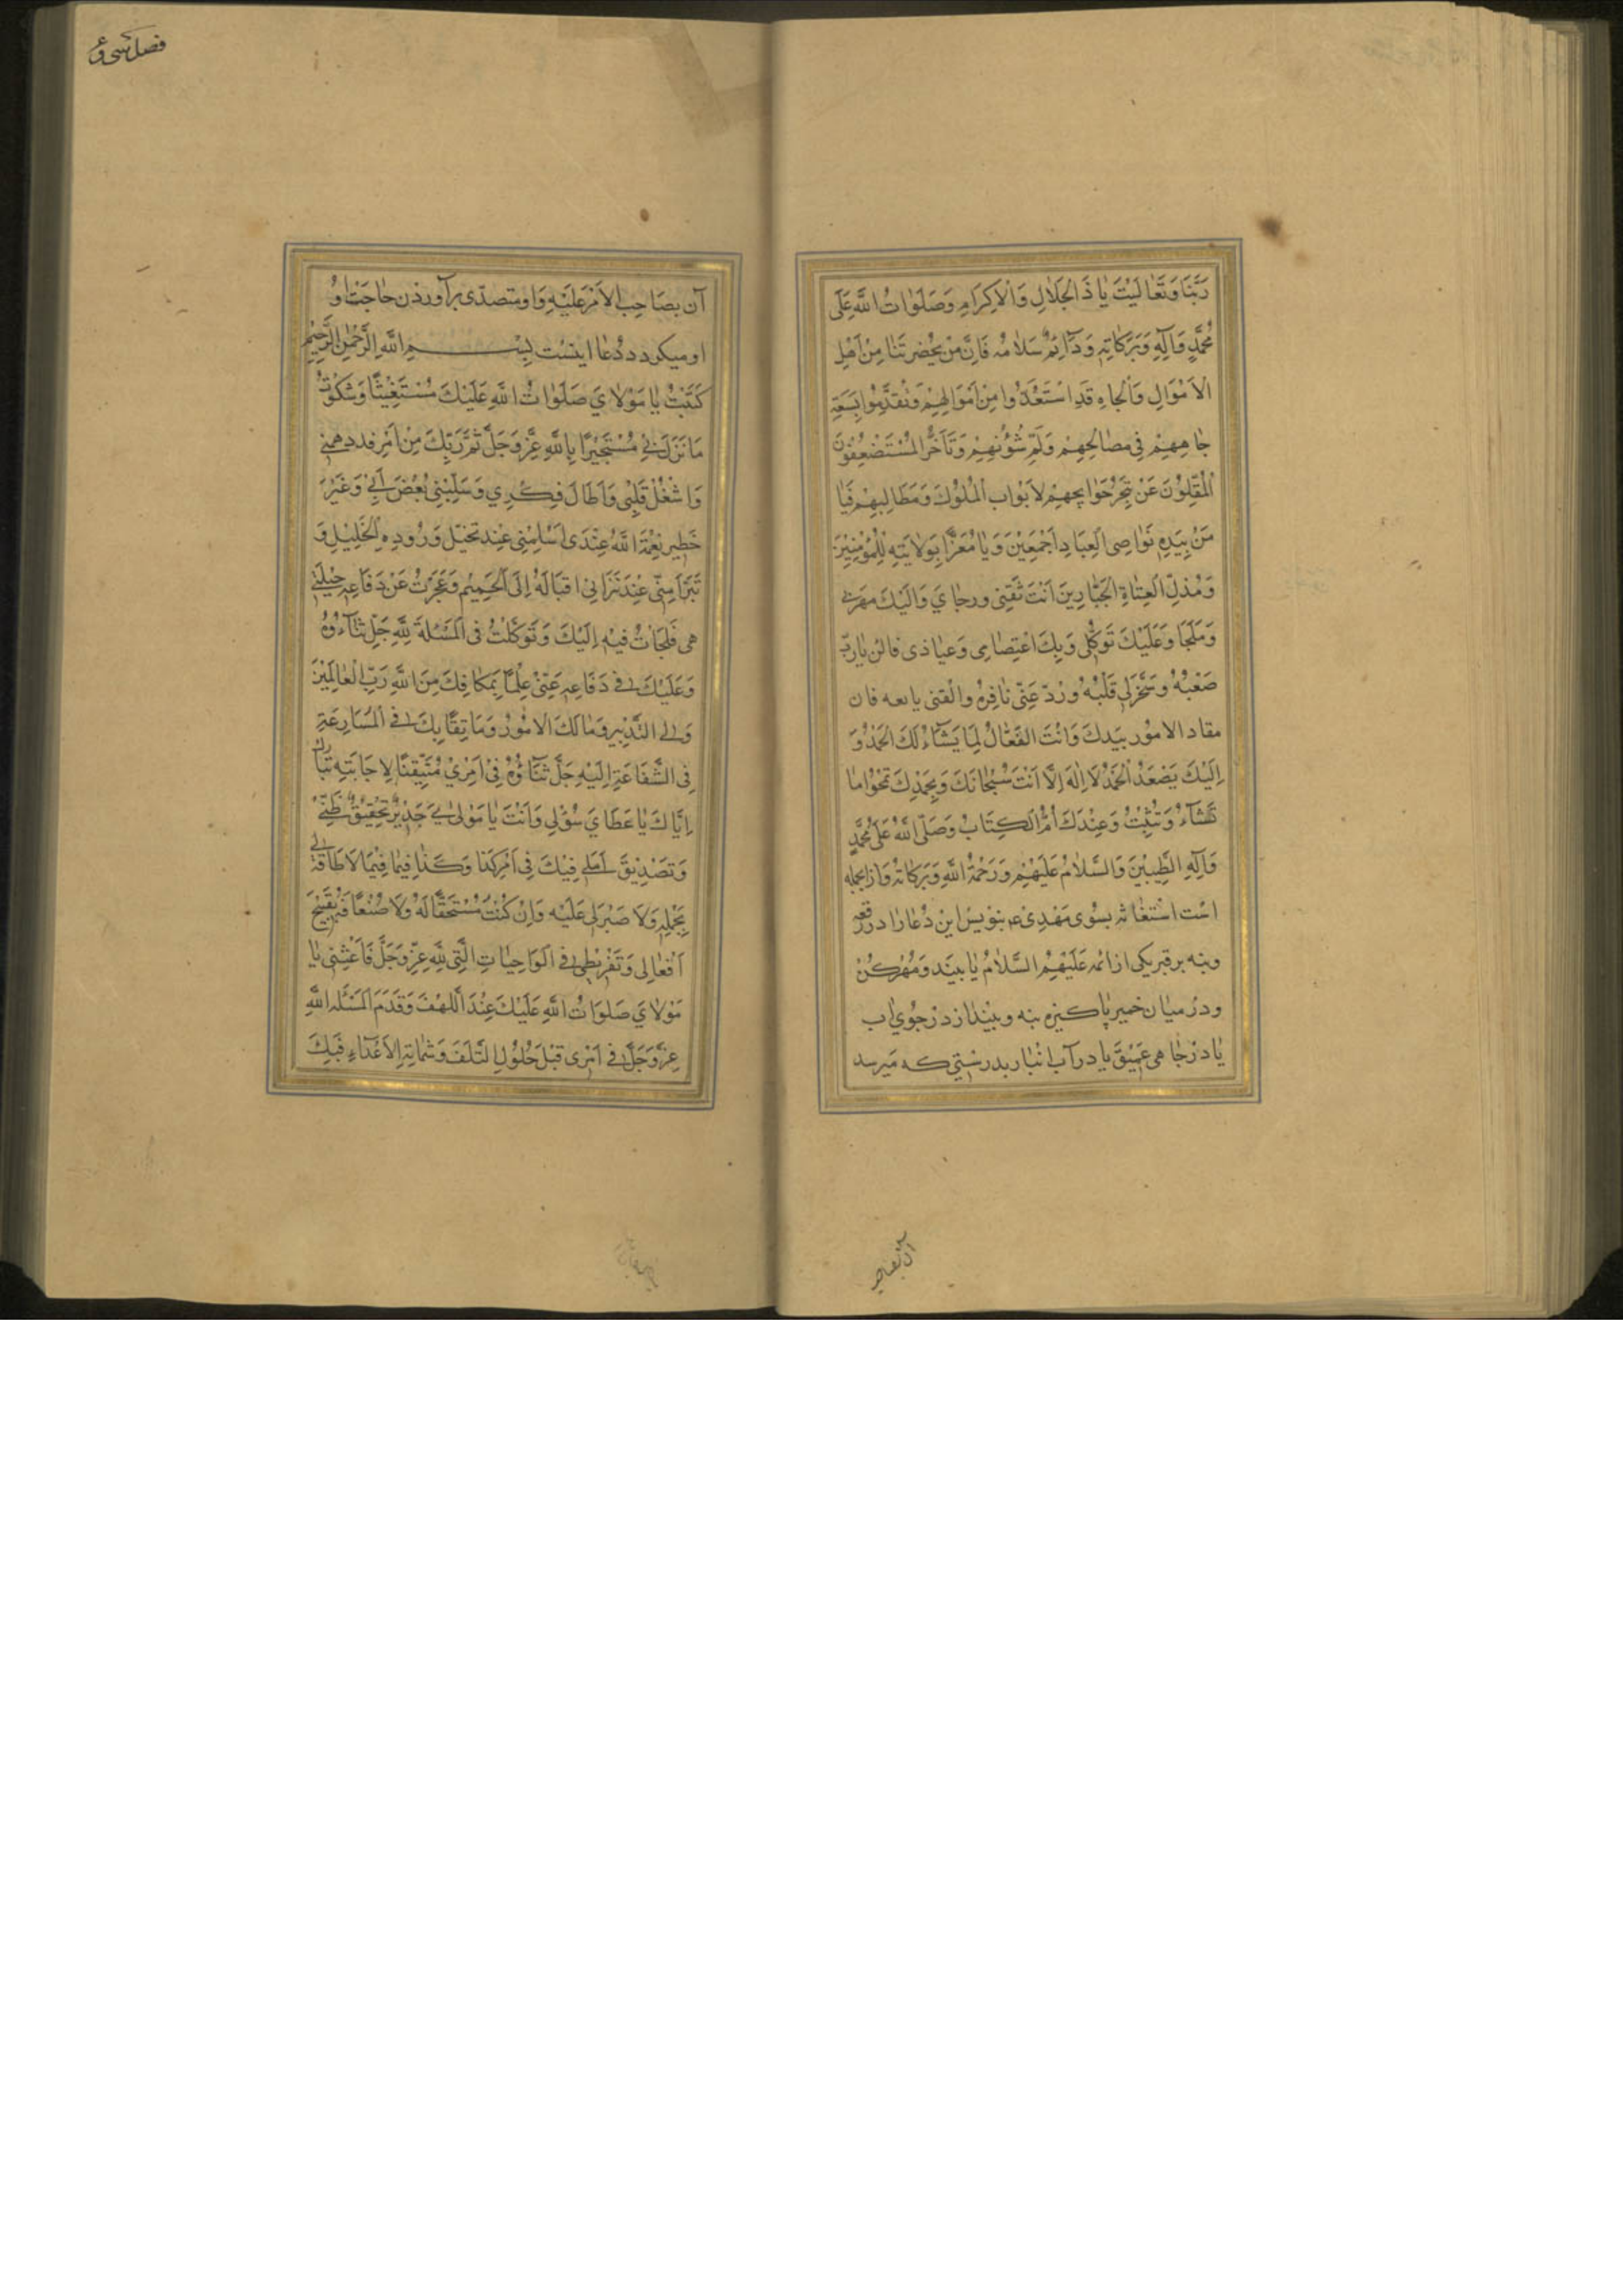 رَبَّنَا وَتَعَالَيْتَ يَا ذَالْجَلَالِ وَالْاِكْرَامِ وَصَلَوَاتُ اللَّهِ عَلَى
مُحَمَّدٍ وَآلِهِ وَبَرَكَاتِهِ وَدَائِمُ سَلَامُهُ فَاِنَّ مَنْ يَحْضُرَتِنَا مِنْ اَهْلِ
الْاَمْوَالِ وَالْجَاهِ قَدِ اسْتَعَدُّوا مِنْ اَمْوَالِهِمْ وَتَقَدَّمُوا بِسَعَةِ
جَاهِهِمْ فِي مَصَالِحِهِمْ وَلَمِّ شُؤُنِهِمْ وَتَأَخَّرَ الْمُسْتَضْعَفُونَ
الْمُقِلُّونَ عَنْ تَنَجُّزِ حَوَايِجِهِمْ لِاَبْوَابِ الْمُلُوكِ وَمَطَالِبِهِمْ فَيَا
مَنْ بِيَدِهِ نَوَاصِى الْعِبَادِ اَجْمَعِينَ وَيَا مُعِزًّا بِوَلَايَتِهِ لِلْمُؤْمِنِينَ
وَمُذِلَّ الْعُتَاةِ الْجَبَّارِينَ اَنْتَ ثِقَتِى وَرَجَايَ وَاِلَيْكَ مهربى
وَمَلْجَا وَعَلَيْكَ تَوَكُّلِى وَبِكَ اعْتِصَامِى وَعِيَاذِى فالن يَارَبِّ
صَعْبُهُ وَسَخِّرْ لِى قَلْبَهُ وَرُدَّ عَنِّى نَافِرَهُ وَاكْفِنِى يابعه فان
مقاد الامور بِيَدِكَ وَاَنْتَ الْفَعَّالُ لِمَا يَشَاءُ لَكَ الْحَمْدُ وَ
اِلَيْكَ يَصْعَدُ الْحَمْدُ لَا اِلَهَ اِلَّا اَنْتَ سُبْحَانَكَ وَبِحَمْدِكَ تَمْحُوا مَا
تَشَاءُ وَتُثْبِتُ وَعِنْدَكَ اُمُّ الْكِتَابِ وَصَلَّى اللَّهُ عَلَى مُحَمَّدٍ
وَآلِهِ الطَّيِّبِينَ وَالسَّلَامُ عَلَيْهِمْ وَرَحْمَةُ اللَّهِ وَبَرَكَاتُهُ وَازانجمله
است استغاثه بسوى مهدى ع بنويس اين دعا را در رقعه
وبنه بر قبر يكى از ائمه عَلَيْهِمُ السَّلَامُ يا ببند ومهر كن
ودر ميان خمير پاكيزه بنه وبينداز در جوى اب
يا در چاهى عميق يا در آب انبار بدرستى كه ميرسد
آن بصا
فصل سى و
آن بصَاحِب الاَمْر عَلَيْهِ وَاو متصدّى برآوردن حاجت او
او ميكردد دعا اينست بِسْمِ اللَّهِ الرَّحْمَنِ الرَّحِيمِ
كَتَبْتُ يَا مَوْلَايَ صَلَوَاتُ اللَّهِ عَلَيْكَ مُسْتَغِيثًا وَشَكَوْتُ
مَا نَزَلَ بِي مُسْتَجِيرًا بِاللَّهِ عَزَّ وَجَلَّ ثُمَّ رَبِّكَ مِنْ اَمْرٍ قد دهمنى
وَاشْغَلَ قَلْبِى وَاَطَالَ فِكْرِي وَسَلَبَنِى بَعْضَ لُبِّى وَغَيَّرَ
خَطِير نِعْمَةَ اللَّهِ عِنْدِى اَسْلَمَنِى عِنْدَ تَخَيُّلِ وَرُودِهِ الْخَلِيلِ وَ
تَبَرَّاَ مِنِّى عِنْدَ تَرَائِى اقْبَالَهُ اِلَى الْحَمِيمِ وَعَجَزَتْ عَنْ دَفَاعِهِ حِيلَتِى
هى فَلَجَأْتُ فِيهِ اِلَيْكَ وَتَوَكَّلْتُ فِى الْمَسْئَلَةِ لِلَّهِ جَلَّ ثَنَاؤُهُ
وَعَلَيْكَ فِى دَفَاعِهِ عَنِّى عِلْمًا بِمَكَانِكَ مِنَ اللَّهِ رَبِّ الْعَالَمِينَ
وَلِى التَّدْبِيرِ وَمَالِكَ الْاُمُورِ وَمَا تِقًا بِكَ فِى الْمَسَارِعَةِ
فِى الشَّفَاعَةِ اِلَيْهِ جَلَّ ثَنَاؤُهُ فِى اَمْرِي مُتَيَقِّنًا لِاِجَابَتِهِ تَبَارَكَ
اِيَّاكَ يَا عَطَايَ سُؤْلِى وَاَنْتَ يَا مَوْلَايَ جَدِيرٌ بِتَحْقِيقِ ظَنِّى
وَتَصْدِيقِ اَمَلِى فِيكَ فِى اَمْرِ كَذَا وَكَذَا فِيمَا فِيمَا لَا طَاقَةَ لِى
بِحَمْلِهِ وَلَا صَبْرَ لِى عَلَيْهِ وَاِنْ كُنْتُ مُسْتَحِقًّا لَهُ وَلَا ضُعْفًا بِقَبِيحِ
اَفْعَالِى وَتَفْرِيطِى فِى الْوَاجِبَاتِ الَّتِى لِلَّهِ عَزَّ وَجَلَّ فَاَغِثْنِى يَا
مَوْلَايَ صَلَوَاتُ اللَّهِ عَلَيْكَ عِنْدَ اللَّهْفِ وَقَدِّمِ الْمَسْئَلَةَ اللَّهِ
عَزَّ وَجَلَّ فِى اَمْرِى قَبْلَ حُلُولِ التَّلَفِ وَشَمَاتَةِ الْاَعْدَاءِ فَبِكَ